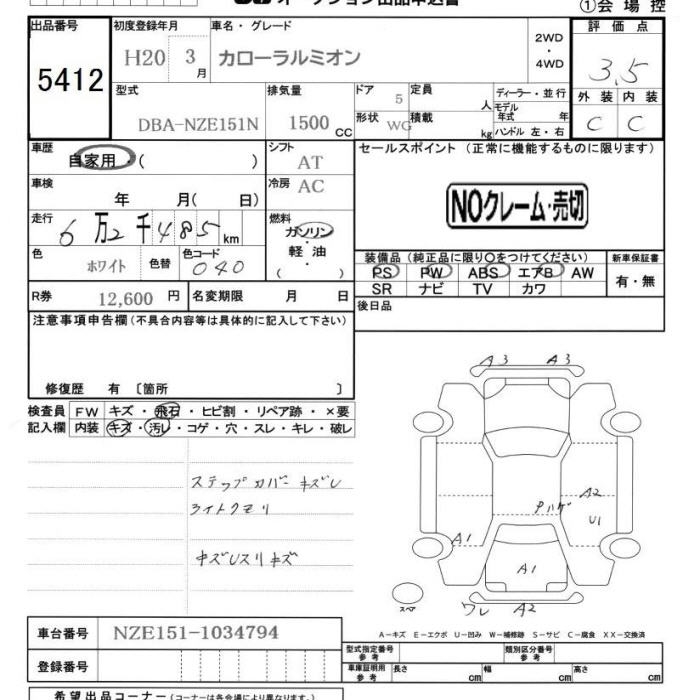 オークション出品申込書 ①会場控
出品番号 初度登録年月 車名・グレード 2WD・4WD 評価点
5412 H20 3月 カローラルミオン 3.5
型式 排気量 ドア 定員 ディーラー・並行 外装 内装
DBA-NZE151N 1500 CC 5 人 モデル年式 年 C C
形状 WG 積載 kg ハンドル 左・右
車歴 シフト セールスポイント (正常に機能するものに限ります)
自家用・( ) AT
車検 冷房 NOクレーム・売切
年 月( 日) AC
走行 燃料
6万2千485km ガソリン・軽油・( )
色 色替 色コード 装備品 (純正品に限り○をつけてください) 新車保証書
ホワイト 040 PS PW ABS エアB AW 有・無
SR ナビ TV カワ
R券 12,600円 名変期限 月 日 後日品
注意事項申告欄 (不具合内容等は具体的に記入して下さい)
修復歴 有 〔箇所 〕
A3 A3
検査員 FW キズ・飛石・ヒビ割・リペア跡・×要
記入欄 内装 キズ・汚レ・コゲ・穴・スレ・キレ・破レ
ステップカバーキズU
ライトクモリ
キズUスリキズ
Pハゲ A2
U1
A1
A1
スペア ワレ A2
A-キズ E-エクボ U-凹み W-補修跡 S-サビ C-腐食 XX-交換済
車台番号 NZE151-1034794
型式指定番号 参考 類別区分番号 参考
登録番号 車庫証明用 参考 長さ cm 幅 cm 高さ cm
希望出品コーナー (コーナーは各会場により異なります。)